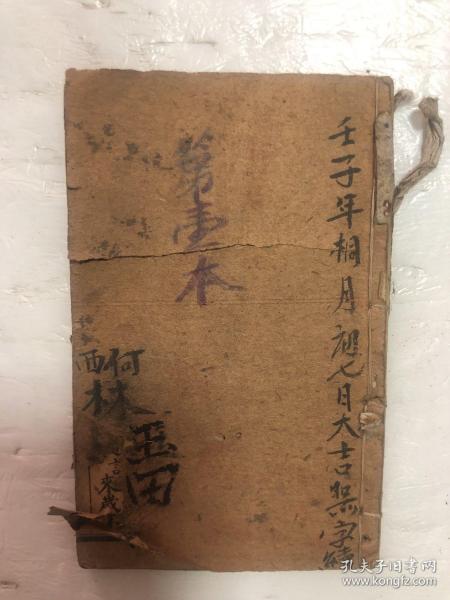 壬子年桐月初七日大吉
第壹本
何
玉田
西林
來歲
孔夫子旧书网
kongfz.com